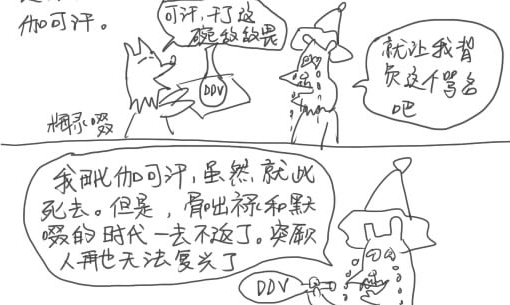 伽可汗。
可汗,干了这
碗敌敌畏
DDV
就让我背
负这个骂名
吧
梅录啜
我毗伽可汗,虽然就此
死去。但是,骨咄禄和默
啜的时代一去不返了。突厥
人再也无法复兴了
DDV